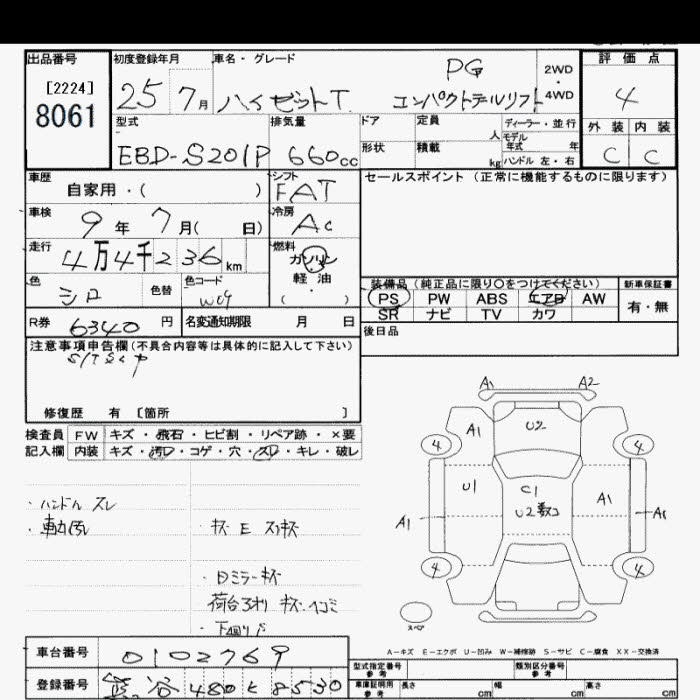 出品番号 初度登録年月 車名・グレード 評価点
[2224]
8061
25 7月 ハイゼットT PG 2WD・4WD 4
エンパクトテールリフト
型式 排気量 ドア 定員 人 ディーラー・並行 外装 内装
モデル年式 年
EBD-S201P 660cc 形状 積載 kg ハンドル 左・右 C C
車歴 自家用・( ) シフト FAT セールスポイント(正常に機能するものに限ります)
車検 9年 7月( 日) 冷房 AC
走行 4万4千236km 燃料 ガソリン
軽油
( ・ )
色 シロ 色替 色コード W09
装備品(純正品に限り〇をつけてください) 新車保証書
PS PW ABS エアB AW 有・無
SR ナビ TV カワ
R券 6340円 名変通知期限 月 日
後日品
注意事項申告欄(不具合内容等は具体的に記入して下さい)
修復歴 有 [箇所 ]
検査員 FW キズ・飛石・ヒビ割・リペア跡・×要
記入欄 内装 キズ・汚レ・コゲ・穴・スレ・キレ・破レ
A1 A2
4 A1 U2 4
U1 C1 A1
A1 U2数コ A1
4 4
スペア
・ハンドル スレ
・キズ E スリキズ
・Dミラーキズ
荷台3オリ キズ ヘコミ
・下回りS
A-キズ E-エクボ U-凹み W-補修跡 S-サビ C-腐食 XX-交換済
車台番号 0102769
型式指定番号 参考 類別区分番号 参考
登録番号 480 8530
車庫証明用 参考 長さ cm 幅 cm 高さ cm